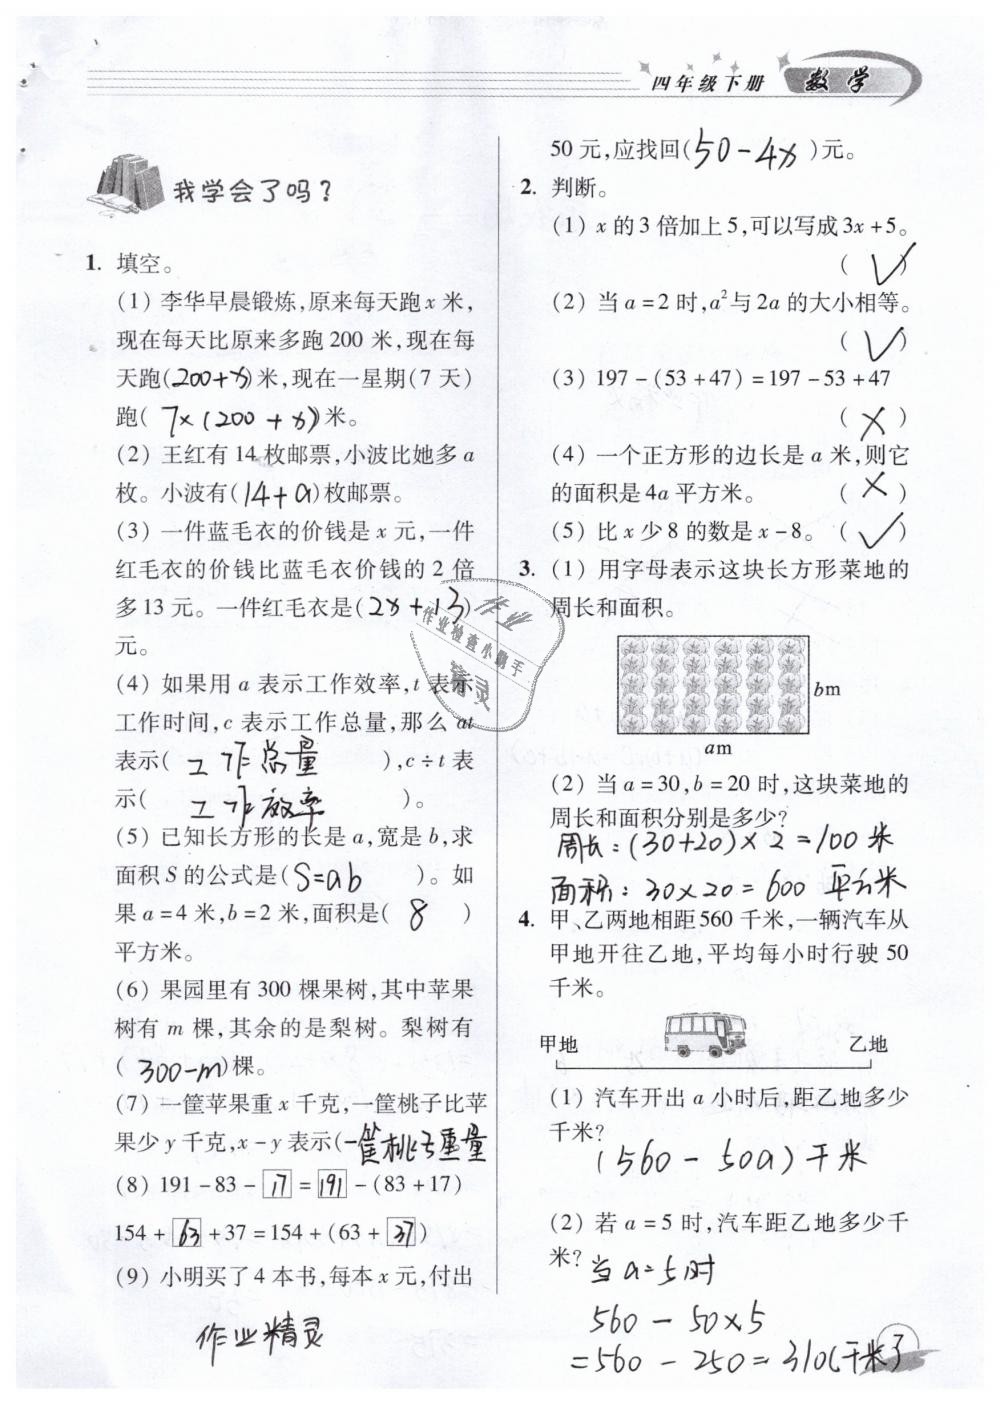 四年级下册 数学
我学会了吗?
1. 填空。
(1) 李华早晨锻炼,原来每天跑x米,
现在每天比原来多跑200米,现在每
天跑(200+x)米,现在一星期(7天)
跑( 7×(200+x))米。
(2) 王红有14枚邮票,小波比她多a
枚。小波有(14+a)枚邮票。
(3) 一件蓝毛衣的价钱是x元,一件
红毛衣的价钱比蓝毛衣价钱的2倍
多13元。一件红毛衣是(2x+13)
元。
(4) 如果用a表示工作效率,t表示
工作时间,c表示工作总量,那么at
表示( 工作总量 ),c÷t表
示( 工作效率 )。
(5) 已知长方形的长是a,宽是b,求
面积S的公式是(S=ab )。如
果a=4米,b=2米,面积是( 8 )
平方米。
(6) 果园里有300棵果树,其中苹果
树有m棵,其余的是梨树。梨树有
( 300-m)棵。
(7) 一筐苹果重x千克,一筐桃子比苹
果少y千克,x-y表示(一筐桃子重量
(8) 191-83-17=191-(83+17)
154+63+37=154+(63+37)
(9) 小明买了4本书,每本x元,付出
作业精灵
50元,应找回(50-4x )元。
2. 判断。
(1) x的3倍加上5,可以写成3x+5。
( ✓ )
(2) 当a=2时,a²与2a的大小相等。
( ✓ )
(3) 197-(53+47)=197-53+47
( × )
(4) 一个正方形的边长是a米,则它
的面积是4a平方米。 ( × )
(5) 比x少8的数是x-8。( ✓ )
3. (1) 用字母表示这块长方形菜地的
周长和面积。
bm
am
(2) 当a=30,b=20时,这块菜地的
周长和面积分别是多少?
周长:(30+20)×2=100米
面积:30×20=600 平方米
4. 甲、乙两地相距560千米,一辆汽车从
甲地开往乙地,平均每小时行驶50
千米。
甲地 乙地
(1) 汽车开出a小时后,距乙地多少
千米?
(560-50a)千米
(2) 若a=5时,汽车距乙地多少千
米?
当a=5时
560-50×5
=560-250=310(千米)
3
作业
作业检查小助手
精灵